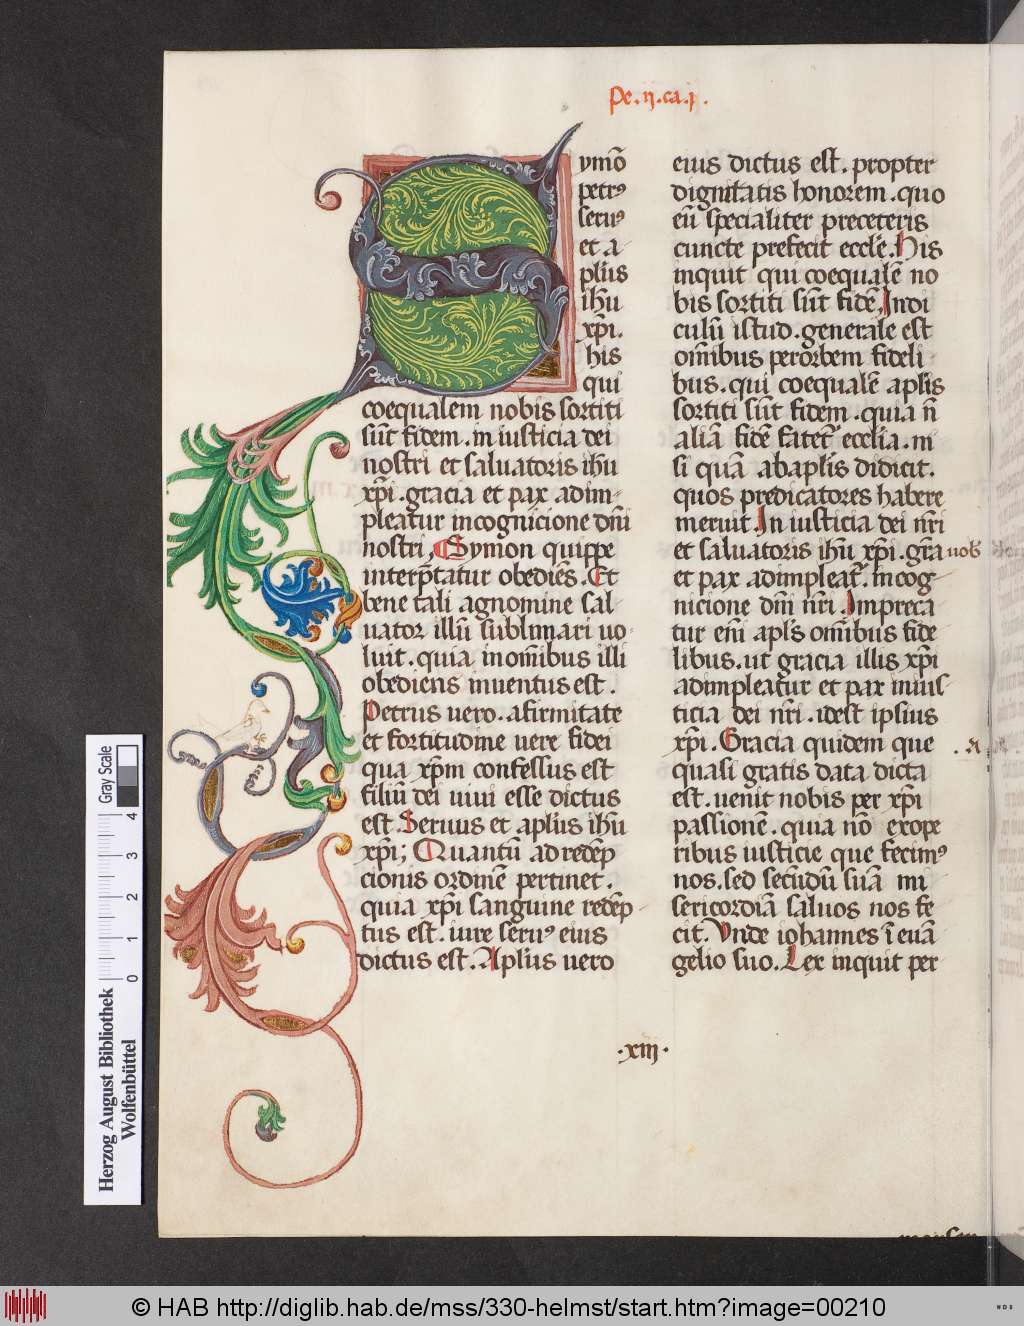 Pe . ij . ca . j .
Symō
petrꝰ
seruꝰ
et a
pl̄us
ih̄u
xp̄i .
his
qui
coequalem nobis sortiti
sūt fidem . in iusticia dei
nostri et saluatoris ih̄u
xp̄i . gracia et pax adim
pleatur in cognicione dn̄i
nostri , Symon quippe
interp̄tatur obediēs . Et
bene tali agnomine sal
uator illū sublimari uo
luit . quia in om̄ibus illi
obediens inuentus est .
Petrus uero . a firmitate
et fortitudine uere fidei
qua xp̄m confessus est
filiū dei uiui esse dictus
est . Seruus et apl̄us ih̄u
xp̄i ; Quantū ad redēp
cionis ordinē pertinet .
quia xp̄i sanguine redēp
tus est . iure seruꝰ eius
dictus est . Apl̄us uero
eius dictus est . propter
dignitatis honorem . quo
eū specialiter pre ceteris
cuncte prefecit eccl̄e . His
inquit qui coequalē no
bis sortiti sūt fidē , Indi
culū istud . generale est
om̄ibus per orbem fideli
bus . qui coequalē apl̄is
sortiti sūt fidem . quia n̄
aliā fidē fatet᷑ ecclia . ni
si quā ab apl̄is didicit .
quos predicatores habere
meruit . In iusticia dei nr̄i
et saluatoris ih̄u xp̄i . gr̄a uob
et pax adimpleat᷑ . in cog
nicione dn̄i nr̄i . Impreca
tur en̄i apl̄s om̄ibus fide
libus . ut gracia illis xp̄i
adimpleatur et pax in ius
ticia dei nr̄i . idest ipsius
xp̄i . Gracia quidem que
quasi gratis data dicta
est . uenit nobis per xp̄i
passionē . quia nō ex ope
ribus iusticie que fecimꝰ
nos . sed secūdū suā mi
sericordiā saluos nos fe
cit . Vnde iohannes ī euā
gelio suo . Lex inquit per
· xiij ·
Gray Scale
0 1 2 3 4
Herzog August Bibliothek
Wolfenbüttel
© HAB http://diglib.hab.de/mss/330-helmst/start.htm?image=00210